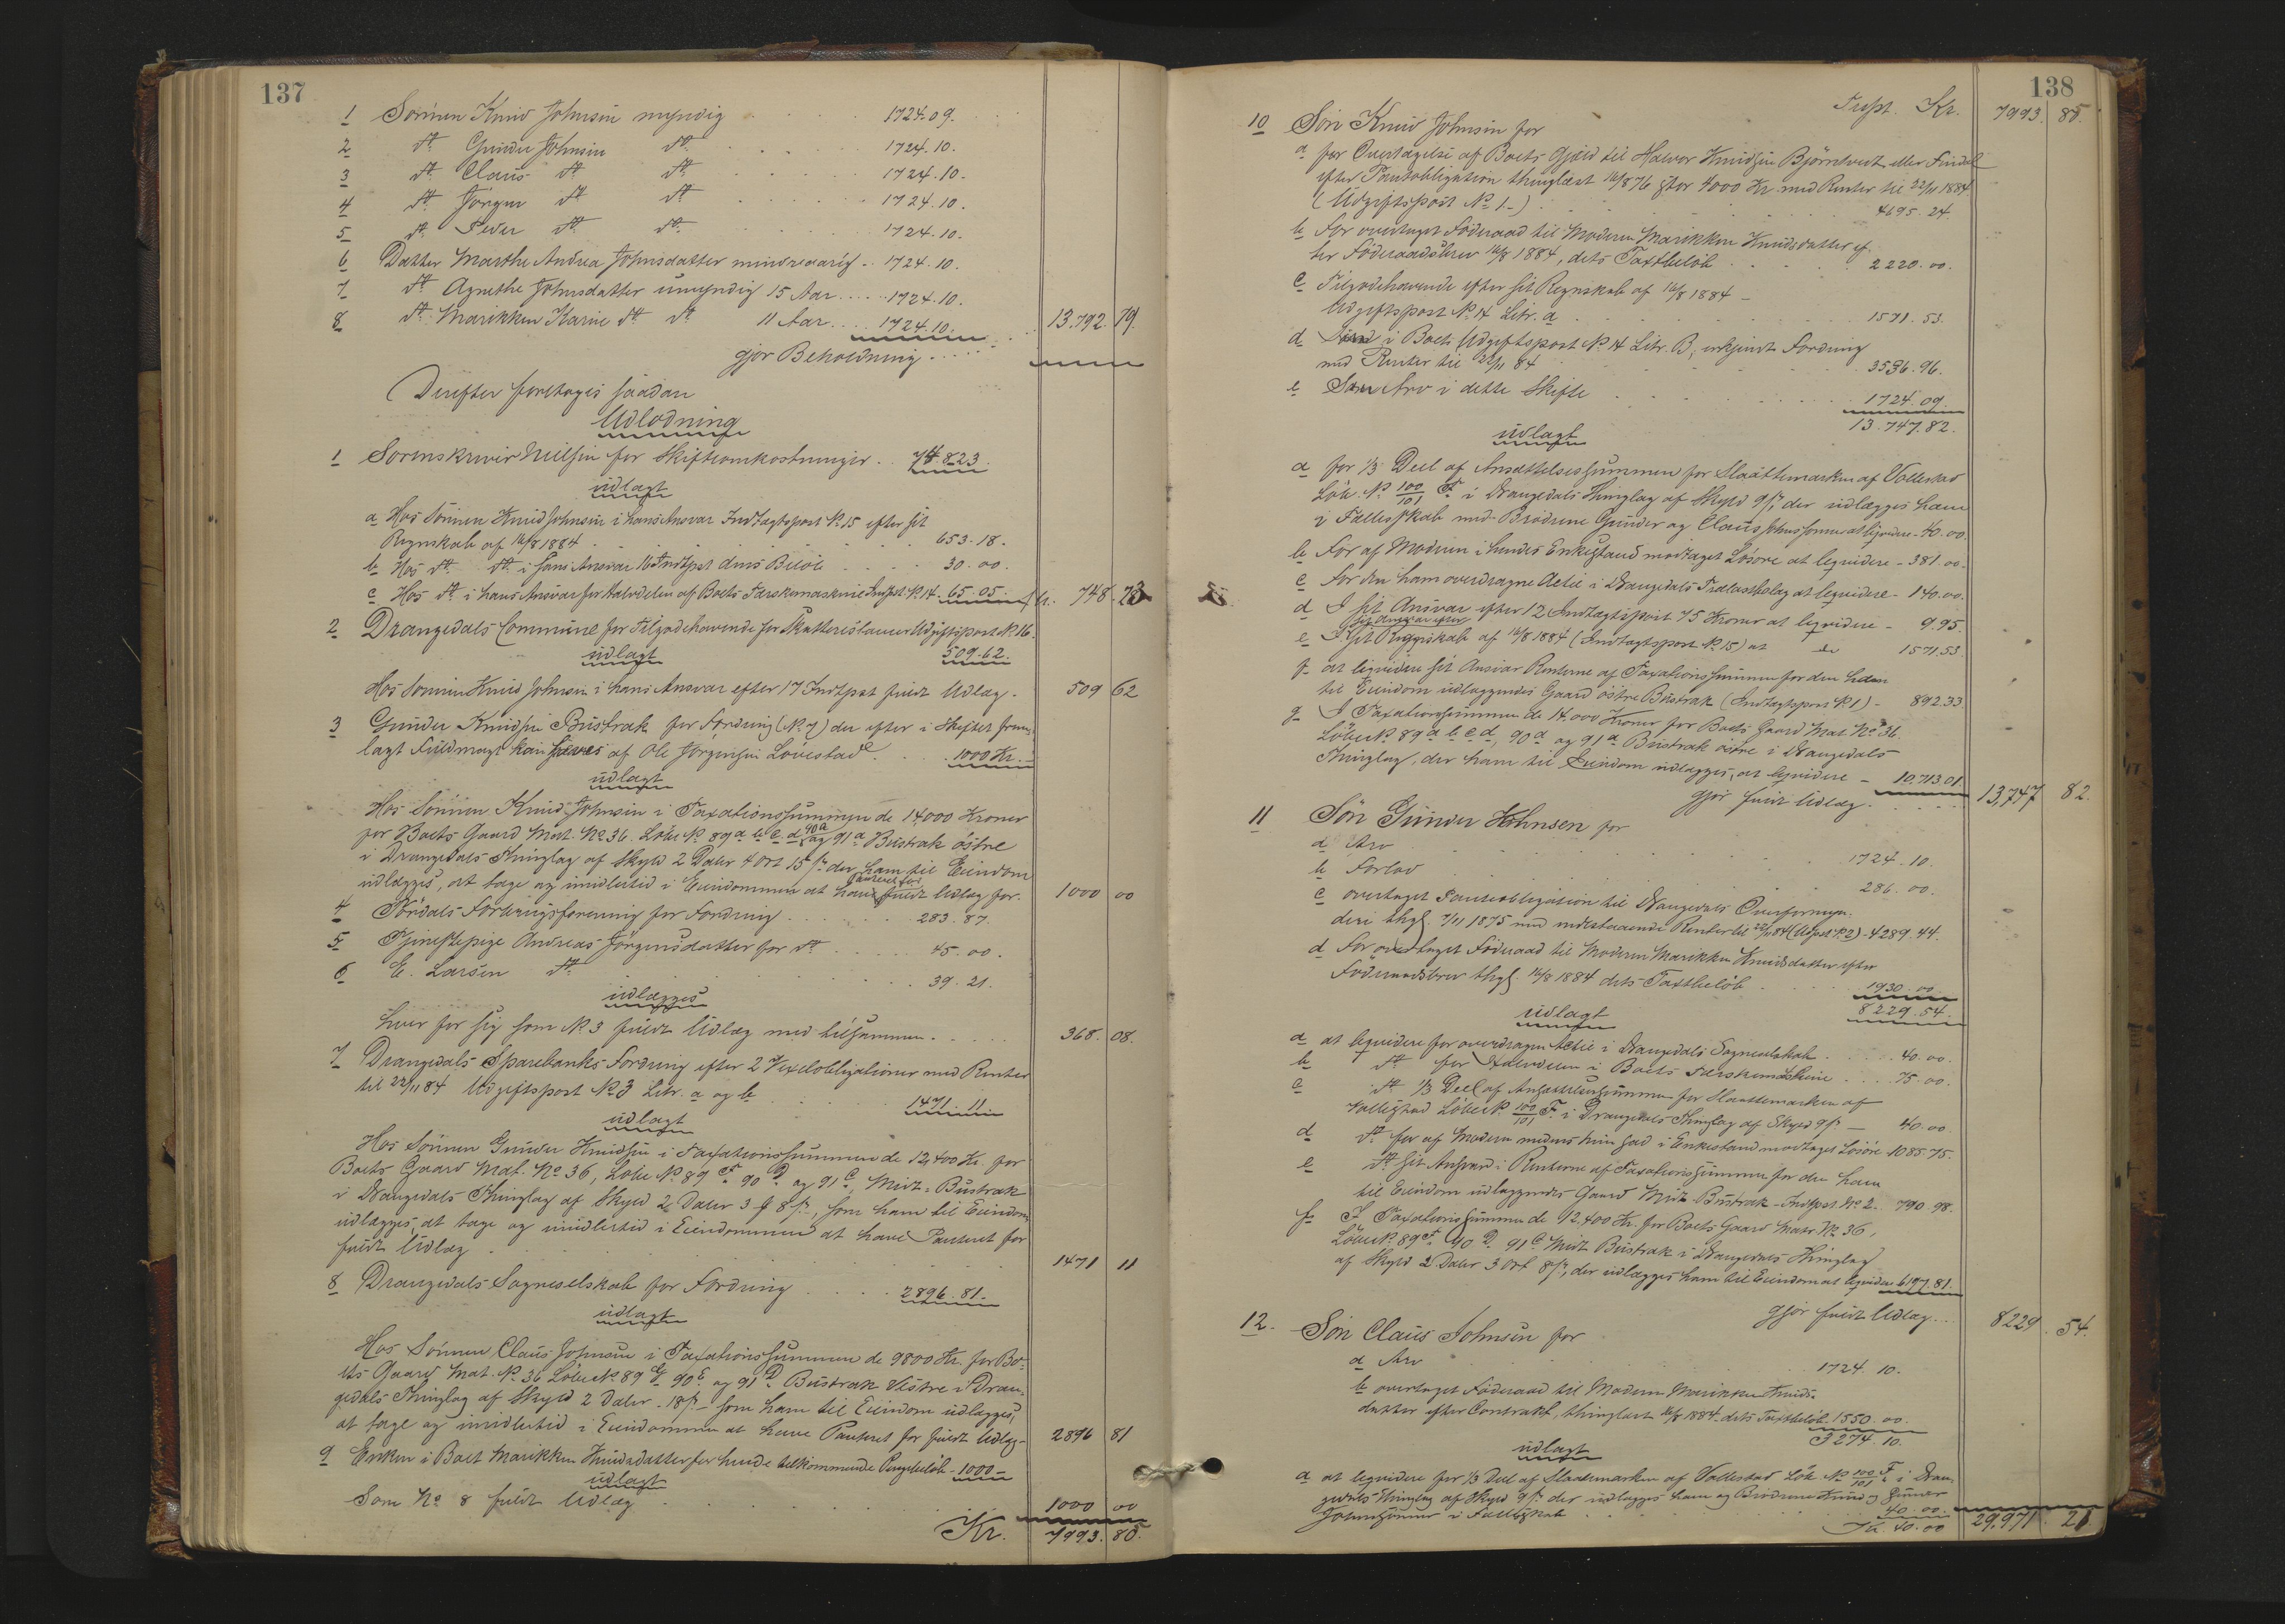 137
1 Sønnen Knud Johnsen myndig 1724.09.
2 dto Gunder Johnsen dto 1724.10.
3 dto Claus dto dto 1724.10.
4 dto Jörgen dto dto 1724.10.
5 dto Peder dto dto 1724.10.
6 Datter Marthe Andrea Johnsdatter mindreaarig 1724.10.
7 dto Agnethe Johnsdatter umyndig 15 Aar 1724.10.
8 dto Marikken Karine dto dto 11 Aar 1724.10. 13.792.79.
gjør Beholdning
Derefter foretages saadan
Udlodning
1 Sorenskriver Nielsen for Skifteomkostninger 748.23.
udlagt
a Hos Sønnen Knud Johnsen i hans Ansvar Indtægtspost No 15 efter sit
Regnskab af 16/8 1884 653.18.
b Hos dto dto i hans Ansvar 16 Indtpst dens Beløb 30.00.
c Hos dto i hans Ansvar for Halvdelen af Boets Tærskemaskine Indpst No 14 65.05. Kr. 748.23
2 Drangedals Commune for Tilgodehavende for Skatterestancer Udgiftspost No 16.
udlagt 509.62.
Hos Sønnen Knud Johnsen i hans Ansvar efter 17 Indtpst fuldt Udlæg. 509 62
3 Gunder Knudsen Bustrak for Fordring (No 7) der efter i Skiftet frem-
lagt Fuldmagt kan hæves af Ole Jørgensen Lövestad 1000 Kr.
udlagt
Hos Sønnen Knud Johnsen i Taxationssummen de 14,000 Kroner
for Boets Gaard Mat. No 36 Löbe No 89 a b c d 90a og 91 a Bustrak östre
i Drangedals Thinglag af Skyld 2 Daler 4 Ort 15 s der ham til Eiendom
udlægges, at tage og imidlertid i Eiendommen at have Panteret for fuldt Udlæg for. 1000 00
4 Tördals Forbrugsforening for Fordring 283.87.
5 Tjenestepige Andreas Jörgensdatter for dto 45.00.
6 E. Larsen dto 39.21.
udlægges
hver for sig som No 3 fuldt Udlæg med tilsammen. 368.08.
7 Drangedals Sparebanks Fordring efter 2 Vexelobligationer med Renter
til 22/11 84 Udgiftspost No 3 Litr. a og b 1471.11
udlagt
Hos Sønnen Gunder Knudsen i Taxationssummen de 12,400 Kr. for
Boets Gaard Mat. No 36, Löbe No 89 F 90 D og 91 C, Midt-Bustrak
i Drangedals Thinglag af Skyld 2 Daler 3 8 s, som ham til Eiendom
udlægges, at tage og imidlertid i Eiendommen at have Panteret for
fuldt Udlæg 1471 11
8 Drangedals Sogneselskab for Fordring 2896.81.
udlagt
Hos Sønnen Claus Johnsen i Taxationssummen de 9800 Kr. for Bo-
ets Gaard Mat. No 36 Löbe No 89 G 90 E og 91 D Bustrak Vestre i Dran-
gedals Thinglag af Skyld 2 Daler - 18 s - som ham til Eiendom udlægges,
at tage og imidlertid i Eiendommen at have Panteret for fuldt Udlæg- 2896 81
9 Enken i Boet Marikken Knudsdatter for hende tilkommende Pengebeløb 1000-
udlagt
Som No 8 fuldt Udlæg 1000 00
Kr. 7993.85.
138
Trspt. Kr. 7993. 85.
10 Søn Knud Johnsen for
a for Overtagelse af Boets Gjæld til Halvor Knudsen Björntvedt
efter Pantobligation thinglæst 16/8 76 stor 4000 Kr. med Renter til 22/11 1884
(Udgiftspost No 1-) 4695.24.
b For overtaget Föderaad til Moderen Marikken Knudsdatter ef-
ter Föderaadsbrev 16/8 1884, dets Taxtbeløb 2220.00.
c Tilgodehavende efter sit Regnskab af 16/8 1884 -
Udgiftspost No 14 Litr. a 1571.53.
d i Boets Udgiftspost No 14 Litr. B, erkjendt Fordring
med Renter til 22/11 84 3536.96.
e Sin Arv i dette Skifte 1724.09.
13.747.82.
udlagt
a for 1/3 Deel af Ansættelsessummen for Slaattemarken af Vollestad
Löbe No 100/101 F i Drangedals Thinglag af Skyld 9 s, der udlægges ham
i Fællesskab med Brødrene Gunder og Claus Johnssønner at liqvidere - 40.00.
b For af Moderen i hendes Enkestand modtaget Løsøre at liqvidere - 381.00.
c For den ham overdragne Actie i Drangedals at liqvidere - 140.00.
d I sit Ansvar efter 12 Indtægtspost 75 Kroner at liqvidere - 9.95.
e I sit Ansvar efter Regnskab af 16/8 1884 (Indtægtspost No 15) at do 1571.53.
f at liqvidere sit Ansvar Renterne af Taxationssummen for den ham
til Eiendom udlæggendes Gaard östre Bustrak (Indtægtspost No 1) - 892.33.
g I Taxationssummen de 14.000 Kroner for Boets Gaard Mat. No 36.
Löbe No 89 a b c d, 90 a og 91 a Bustrak östre i Drangedals
Thinglag, der ham til Eiendom udlægges, at liqvidere - 10.713.01
gjør fuldt Udlæg. 13,747 82.
11 Søn Gunder Johnsen for
a Arv 1724.10.
b Forlov 286.00.
c overtaget Panteobligation til Drangedals Overformyn-
deri thgl. 7/11 1875 med indestaaende Renter til 22/11 84 (Udpst No 2) - 4289.44.
d For overtaget Föderaad til Moderen Marikken Knudsdatter efter
Föderaadsbrev thgl. 16/8 1884 dets Taxtbeløb 1930.00
8229.54.
udlagt
a at liqvidere for overdragen Actie i Drangedals Sogneselskab 40.00.
b dto for Halvdelen i Boets Tærskemaskine 75.00.
c dto 1/3 Deel af Ansættelsessummen for Slaattemarken af
Vollestad Löbe No 100/101 F. i Drangedals Thinglag af Skyld 9 s - 40.00
d dto for af Moderen medens hun sad i Enkestand modtaget Løsøre 1085.75.
e dto sit Ansvar i Renterne af Taxationssummen for den ham
til Eiendom udlæggendes Gaard Midt-Bustrak - Indtpst. No 2. 790.98.
f I Taxationssummen de 12,400 Kr. for Boets Gaard Matr. No 36,
Löbe No 89 F 90 D. 91 C Midt Bustrak i Drangedals Thinglag
af Skyld 2 Daler 3 Ort 8 s, der udlægges ham til Eiendom at liqvidere 6197.81.
gjør fuldt Udlæg. 8229 54.
12. Søn Claus Johnsen for
a Arv 1724.10.
b overtaget Föderaad til Moderen Marikken Knuds-
datter efter Contrakt, thinglæst 16/8 1884 dets Taxtbeløb 1550.00.
3274.10.
udlagt
a at liqvidere for 1/3 Deel af Slaattemarken af Vollestad Löb. No 100/101 F. i Dran-
gedals Thinglag af Skyld 9 s der udlægges ham og Brødrene Knud og Gunder
Johnssønner i Fællesskab 40.00.
40.00 29,971. 21